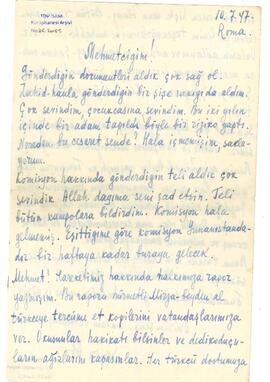 10.7.47.
Roma.
Mehmetciğim!
Gönderdiğin dokumentleri aldık çok sağ ol.
gönderdiğin bir şişe rakıyıda aldım.
Çok sevindim, çocukcasına sevindim. Bu iki yılın
içinde bir adam tapıldı böyle bir riziko yaptı.
Nereden bu cesaret sende! Hala içmemişim, saklı-
yorum.
Komisyon hakkında gönderdiğin teli aldık çok
sevindik. Allah dayıma seni şad etsin. Teli
bütün kampolara bildirdim. Komisyon hala
gelmemiş. Eşittiğime göre komisyon Yunanistanda-
dır bir haftaya kadar buraya gelecek.
Mehmet! Hareketiniz hakkında halkımıza rapor
yazmışım. Bu raporu hürmetli Mirza-beyden al
türkceye tercüme et kopilerini vatandaşlarımıza
ver. Okusunlar hakikatı bilsinler ve dedikoducu-
ların ağızlarını kapasınlar. Her türkcü dostumuza